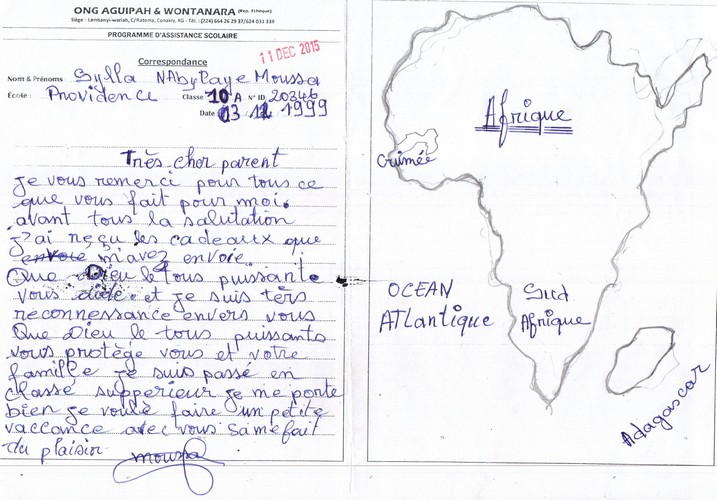 ONG AGUIPAH & WONTANARA (Rep. Tchèque)
Siège : Lambanyi-wariah, C/Ratoma, Conakry, RG - Tél. : (224) 664 26 29 37/624 031 339
PROGRAMME D'ASSISTANCE SCOLAIRE
11 DEC 2015
Correspondance
Nom & Prénoms Sylla NAbyLaye Moussa
École : Providence Classe 10 A N° ID 20346
Date 03/12 1999
Très cher parent
je vous remerci pour tous ce
que vous fait pour moi.
avant tous la salutation
j'ai reçu les cadeaux que
envoie m'avez envoie.
Que Dieu le tous puissante
vous aide. et je suis tèrs
reconnessance envers vous
Que Dieu le tous puissants
vous protège vous et votre
famille je suis passé en
classé supperieur je me porte
bien je voulè faire un petite
vaccance avec vous sa me fait
du plaisir
moussa
Afrique
Guinée
OCEAN
ATLantique
Sud
Afrique
Adagascar